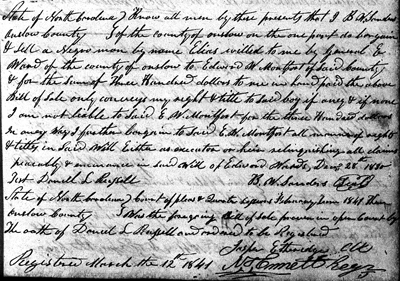 State of North Carolina } Know all men by these presents that I B W Sanders
Onslow County } of the county of onslow on the one part do bargain
& sell a Negro man by name Elias willed to me by General E
Ward of the county of onslow to Edward W Montfort of said county
& for the sum of Three Hundred dollars to me in hand paid the above
Bill of Sale only conveys my right & title to said boy if any & if none
I am not lieble to said E W Montfort for the three Hundred dollars
in any way I further bargin to said E W Montfort all manner of right
& title, in said Will Either as executor or heir relinquishing all claims
in said Will of Edward Wards, Dec 28th 1840
Test Daniel L Russell B. W. Sanders Seal
State of North Carolina } Court of pleas & Quarter Sessions February 1841 Then
Onslow County } Was the foregoing Bill of Sale proven in open Court by
The oath of Daniel L Russell and ordered to be Registered
Jasper Etheridge Clk
Registered March the 12th 1841